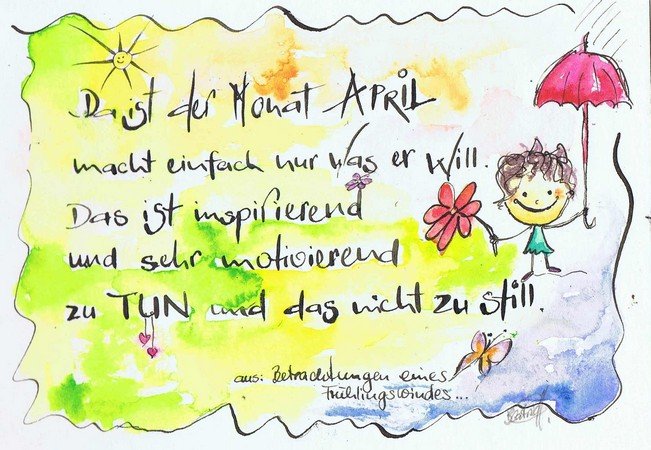 Da ist der Monat APRIL
macht einfach nur was er will.
Das ist inspirierend
und sehr motivierend
zu TUN und das nicht zu still.
aus: Betrachtungen eines
Frühlingswindes...